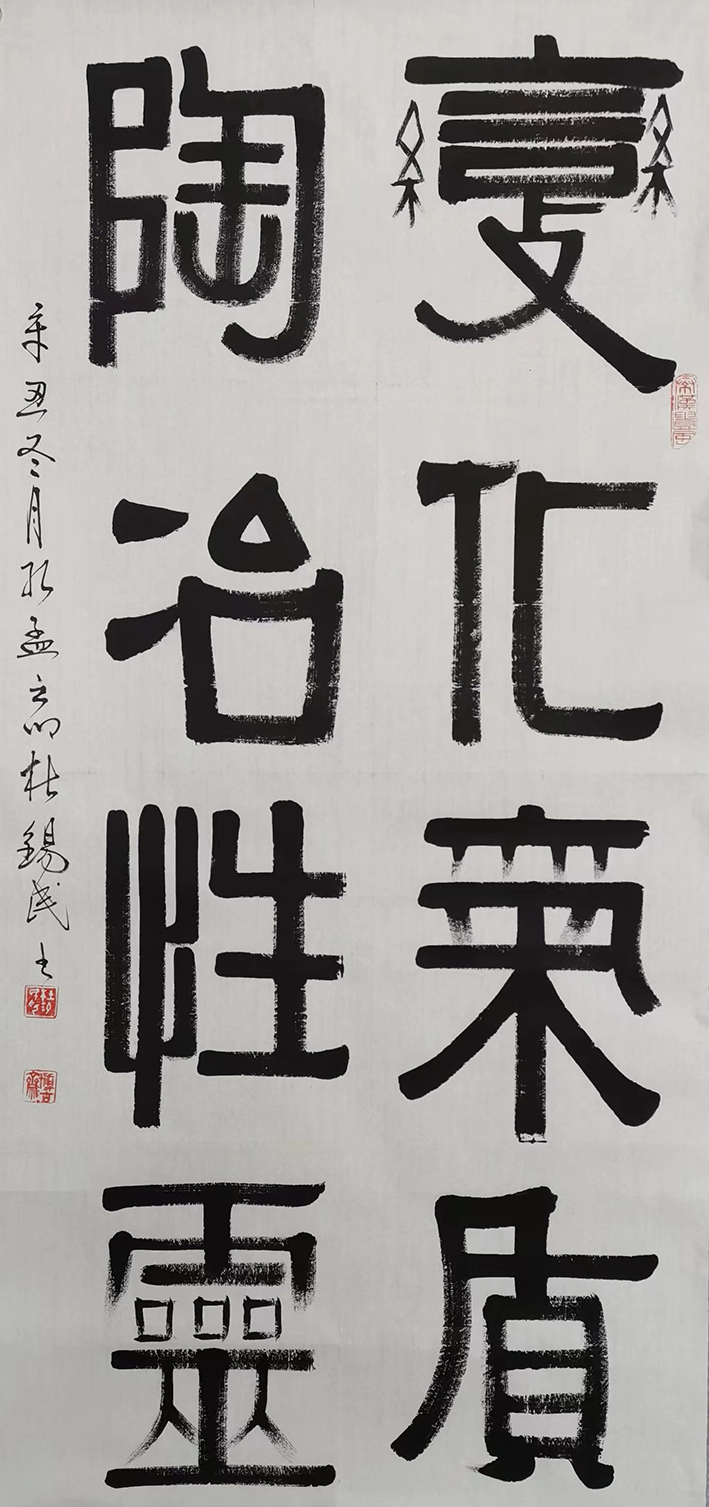 變化氣質
陶冶性靈
辛丑冬月於孟杜錫民书